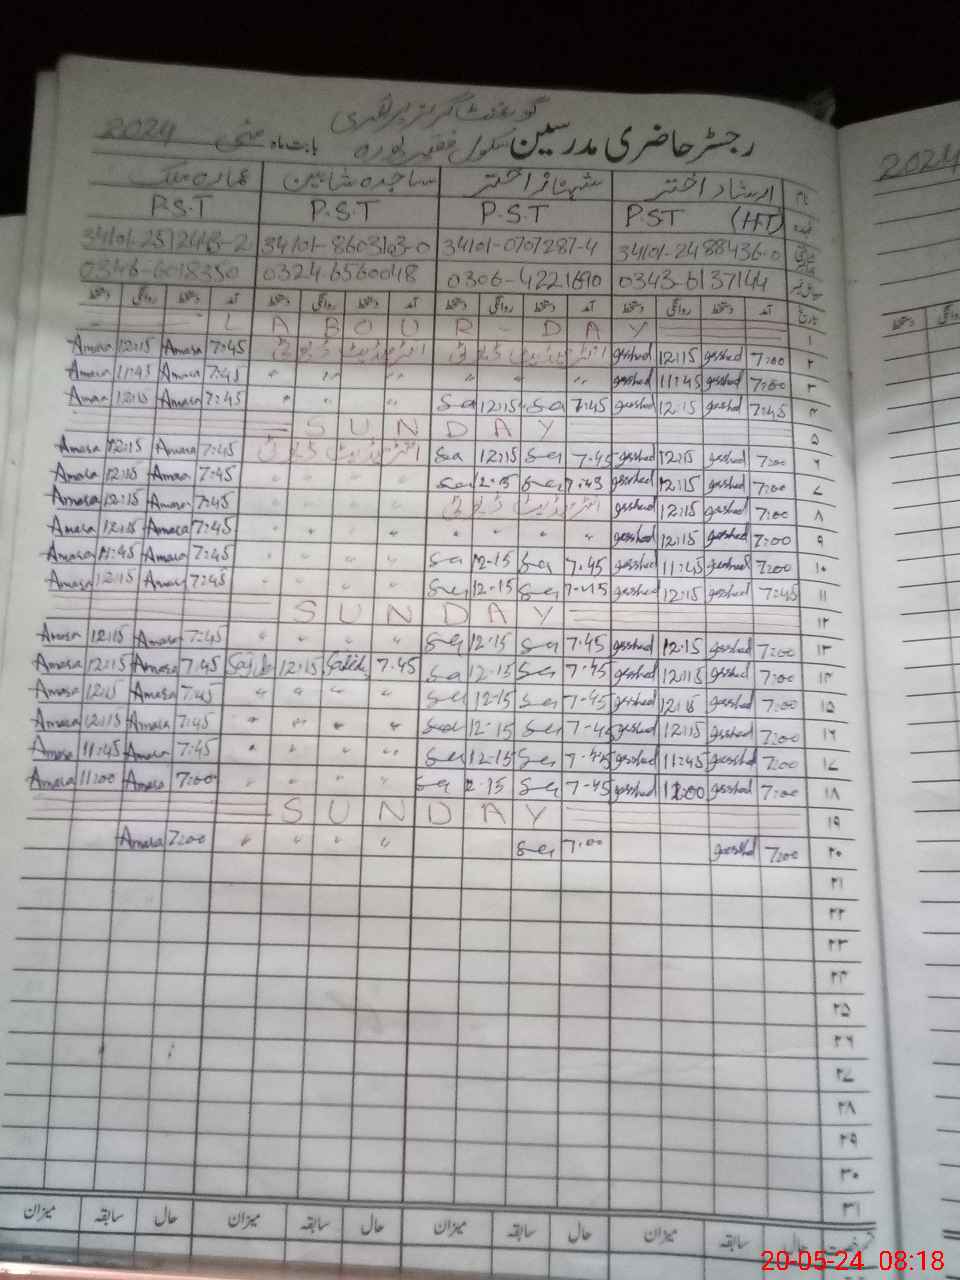 گورنمنٹ گرلز پرائمری
رجسٹر حاضری مدرسین سکول فقیر پورہ بابت ماہ مئی 2024
2024
نام ارشاد اختر شہناز اختر ساجدہ شاہین عمارہ ملک
عہدہ PST (HT) P.S.T P.S.T P.S.T
34101-2488436-0 34101-0707287-4 34101-8603103-0
0343-6137144 0306-4221690 0324-6560048 0346-6018350
تاریخ آمد دستخط روانگی دستخط آمد دستخط روانگی دستخط آمد دستخط روانگی دستخط آمد دستخط روانگی دستخط
۱ LABOUR-DAY
۲ 7:00 gesshed 12:15 gesshed انٹرمیڈیٹ ڈیوٹی انٹرمیڈیٹ ڈیوٹی 7:45 Amara 12:15 Amara
۳ 7:00 gesshed 11:45 gesshed " " " " " " 7:45 Amara 11:45 Amara
۴ 7:45 gesshed 12:15 gesshed 7:45 Sa 12:15 Sa " " " " 7:45 Amara 12:15 Amara
۵ SUNDAY
۶ 7:00 gesshed 12:15 gesshed 7.45 Sa 12:15 Sa انٹرمیڈیٹ ڈیوٹی 7:45 Amara 12:15 Amara
۷ 7:00 gesshed 12:15 gesshed 7.45 Sa 12.15 Sa " " " " 7:45 Amara 12:15 Amara
۸ 7:00 gesshed 12:15 gesshed انٹرمیڈیٹ ڈیوٹی " " " " 7:45 Amara 12:15 Amara
۹ 7:00 gesshed 12:15 gesshed " " " " " " " " 7:45 Amara 12:15 Amara
۱۰ 7:00 gesshed 11:45 gesshed 7.45 Sa 12.15 Sa " " " " 7:45 Amara 11:45 Amara
۱۱ 7:45 gesshed 12:15 gesshed 7.45 Sa 12.15 Sa " " " " 7:45 Amara 12:15 Amara
۱۲ SUNDAY
۱۳ 7:00 gesshed 12:15 gesshed 7.45 Sa 12.15 Sa " " " " 7:45 Amara 12:15 Amara
۱۴ 7:00 gesshed 12:15 gesshed 7.45 Sa 12.15 Sa 7.45 Sajida 12:15 Sajida 7.45 Amara 12:15 Amara
۱۵ 7:00 gesshed 12:15 gesshed 7-45 Sa 12-15 Sa " " " " 7:45 Amara 12:15 Amara
۱۶ 7:00 gesshed 12:15 gesshed 7-45 Sa 12-15 Sa " " " " 7:45 Amara 12:15 Amara
۱۷ 7:00 gesshed 11:45 gesshed 7.45 Sa 12.15 Sa " " " " 7:45 Amara 11:45 Amara
۱۸ 7:00 gesshed 11:00 gesshed 7-45 Sa 12.15 Sa " " " " 7:00 Amara 11:00 Amara
۱۹ SUNDAY
۲۰ 7:00 gesshed 7.00 Sa " " " " 7:00 Amara
۲۱
۲۲
۲۳
۲۴
۲۵
۲۶
۲۷
۲۸
۲۹
۳۰
۳۱
رخصت حال سابقہ میزان حال سابقہ میزان حال سابقہ میزان حال سابقہ میزان
20-05-24 08:18